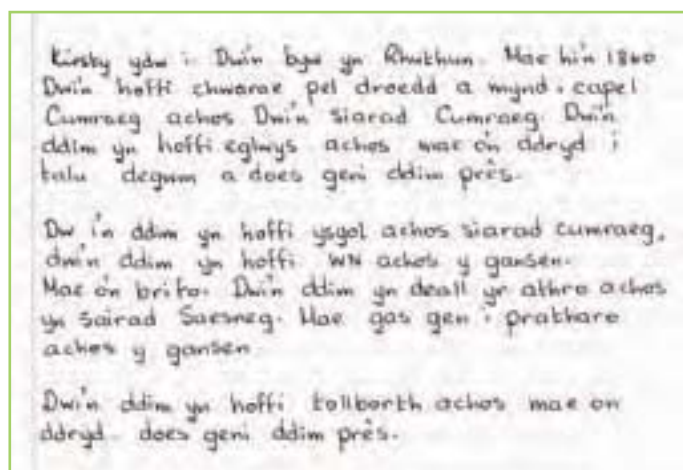 Kirsty ydw i. Dwi'n byw yn Rhuthun. Mae hi'n 1860
Dwi'n hoffi chwarae pel droedd a mynd i capel
Cumraeg achos Dwi'n siarad Cumraeg. Dwi'n
ddim yn hoffi eglwys achos mae o'n ddryd i
talu degum a does geni ddim près.
Dw i'n ddim yn hoffi ysgol achos siarad cumraeg,
dwi'n ddim yn hoffi WN achos y gansen.
Mae o'n brifo. Dwi'n ddim yn deall yr athro achos
yn sairad Saesneg. Mae gas gen i prathare
achos y gansen
Dwi'n ddim yn hoffi tollborth achos mae on
ddryd. does geni ddim près.